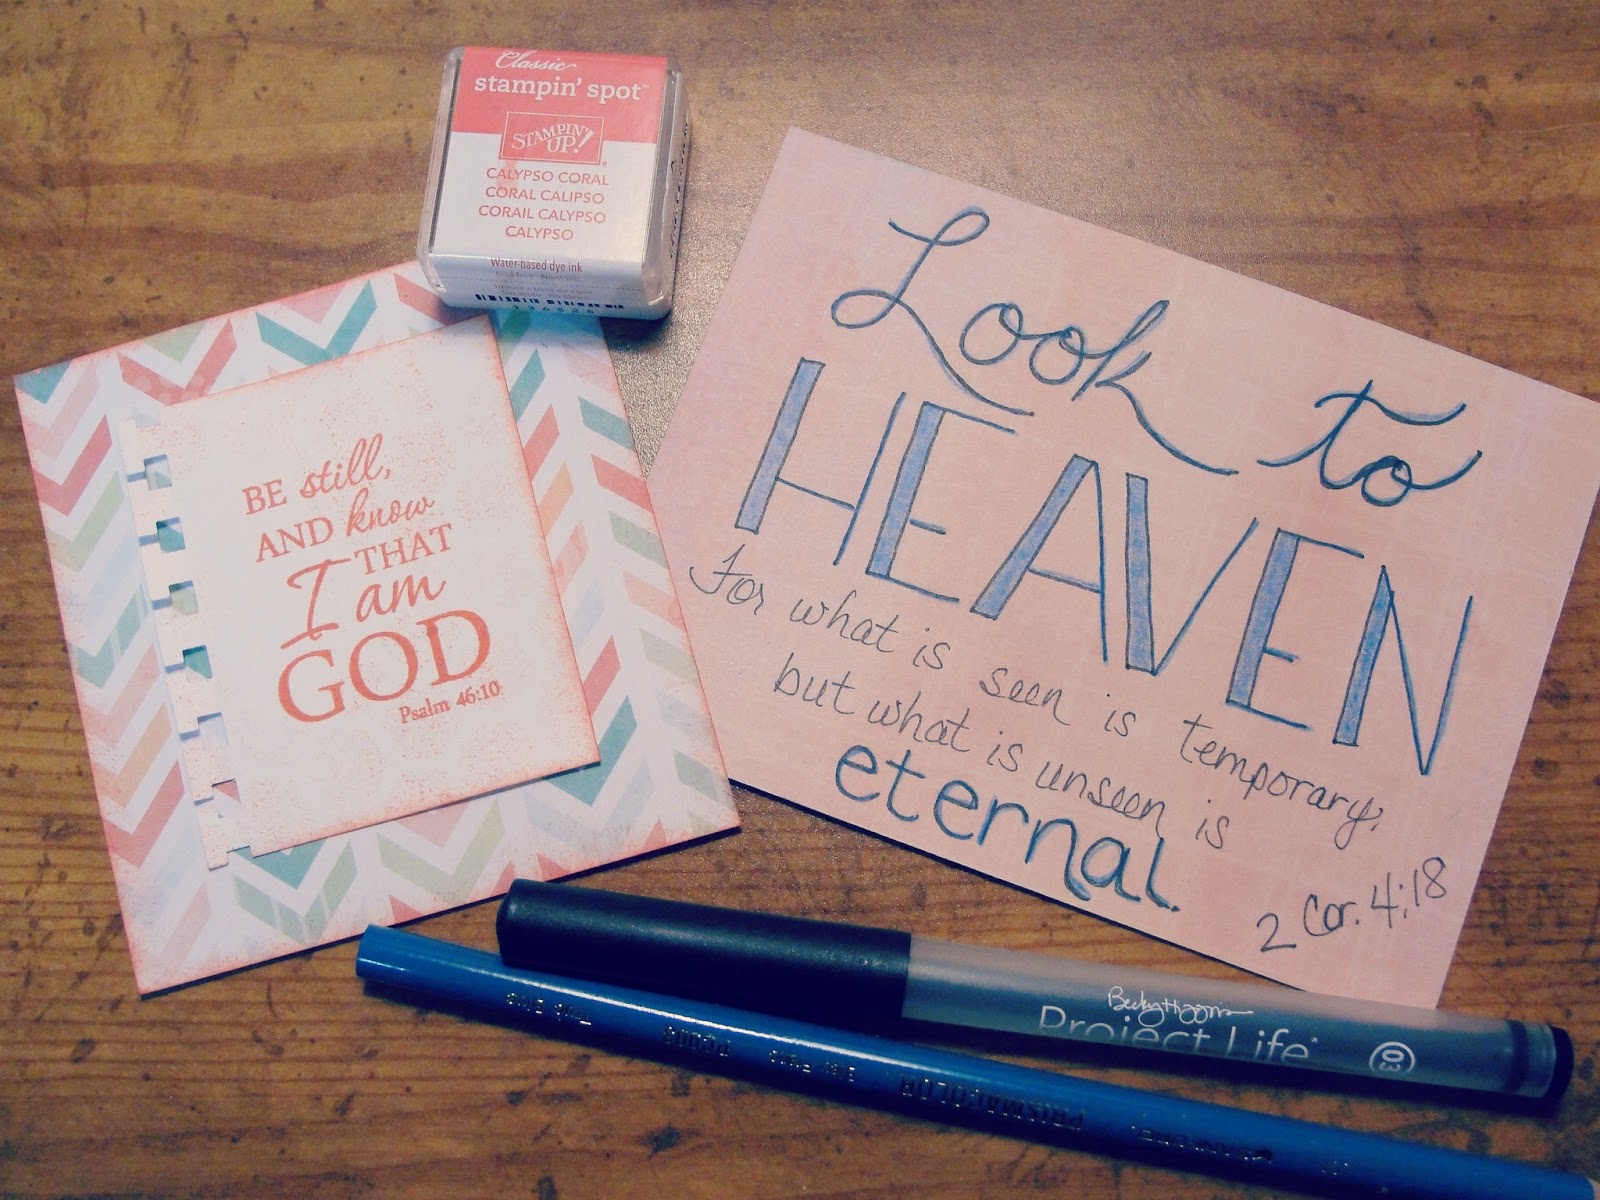 Classic
stampin' spot™
STAMPIN' UP!®
CALYPSO CORAL
CORAL CALIPSO
CORAIL CALYPSO
CALYPSO
Water-based dye ink
BE still,
AND know
THAT
I am
GOD
Psalm 46:10
Look to
HEAVEN
For what is seen is temporary,
but what is unseen is
eternal.
2 Cor. 4:18
Becky Higgins
Project Life
03
PRISMACOLOR